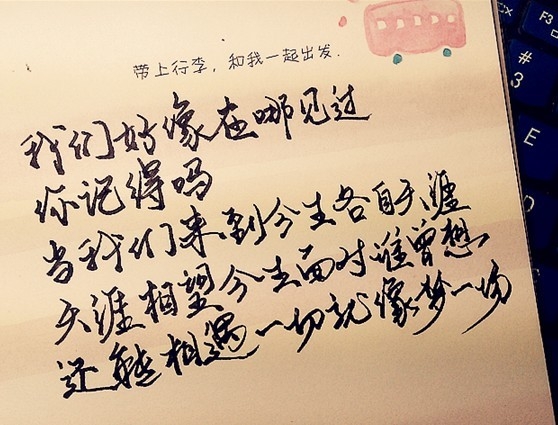 带上行李，和我一起出发.
我们好像在哪见过
你记得吗
当我们来到今生各自天涯
天涯相望今生面对谁曾想
还能相遇一切就像梦一场
F3
#
3
E